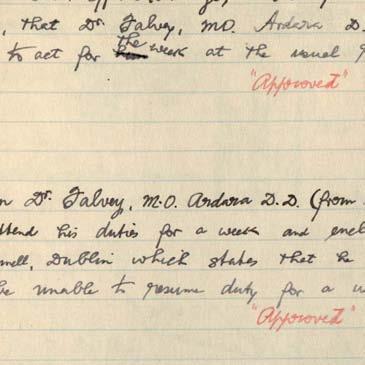 , that Dr. Falvey, M.O. Ardara D.
to act for the week at the usual
"Approved"
Dr. Falvey, M.O. Ardara D.D. (from
his duties for a week and
Dublin which states that he
be unable to resume duty for a
"Approved"